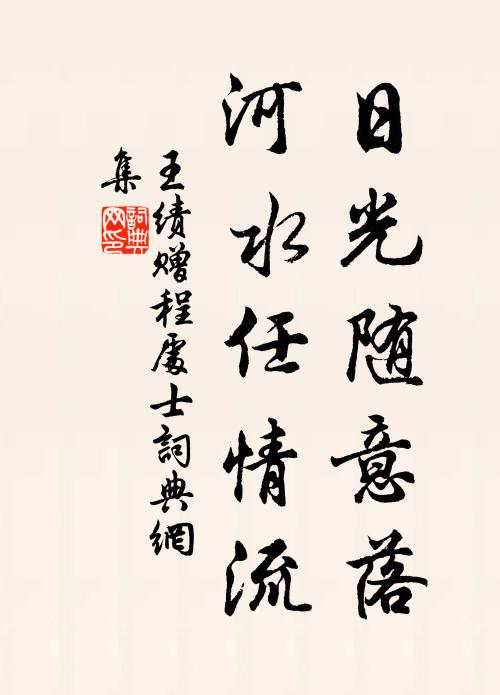 日光随意落
河水任情流
王绩赠程處士詞典網
集
詞典
网印